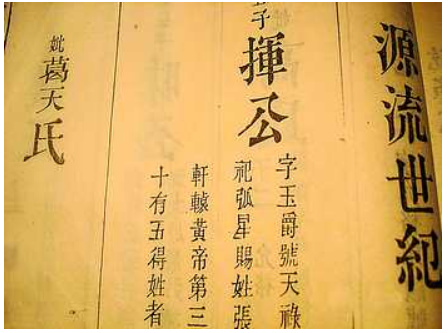 源流世紀
子
揮公
字玉爵號天祿
祀弧星賜姓張
軒轅黃帝第三
十有五得姓者
妣葛天氏